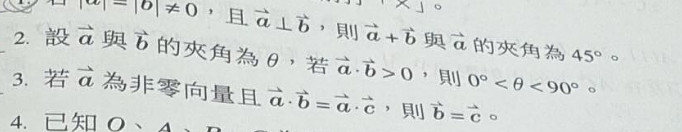 若 |a⃗| = |b⃗| ≠ 0，且 a⃗⊥b⃗，則 a⃗+b⃗ 與 a⃗ 的夾角為 45°。
2. 設 a⃗ 與 b⃗ 的夾角為 θ，若 a⃗·b⃗>0，則 0°<θ<90°。
3. 若 a⃗ 為非零向量且 a⃗·b⃗=a⃗·c⃗，則 b⃗=c⃗。
4. 已知 O、A、